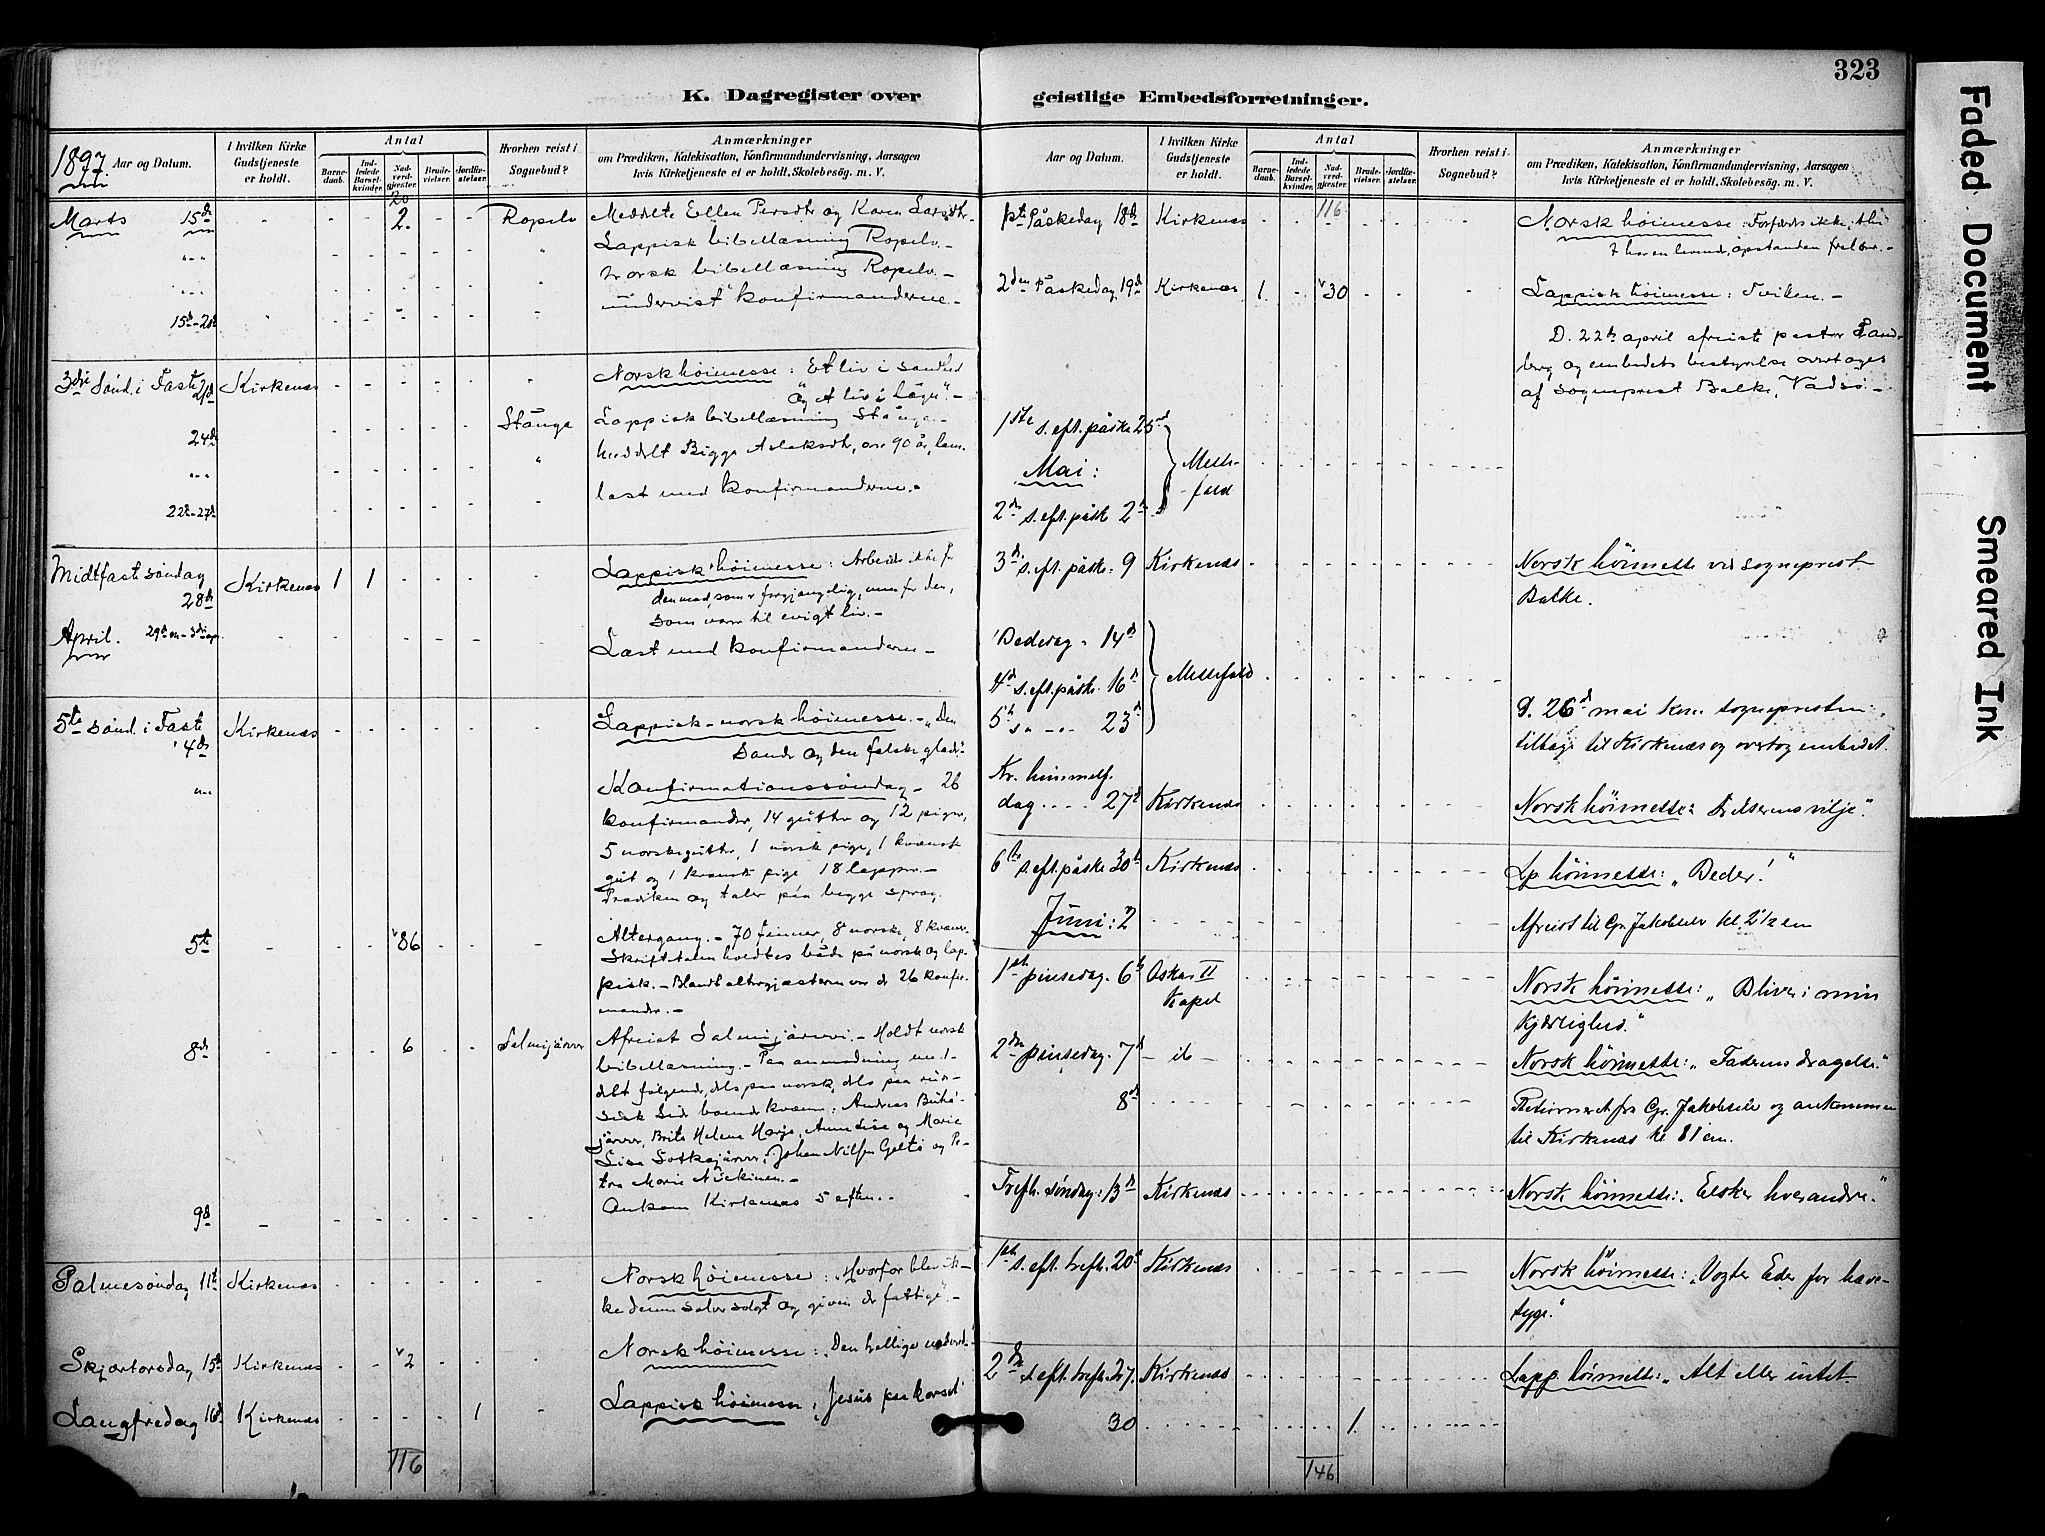 323
K. Dagregister over geistlige Embedsforretninger.
1897. Aar og Datum.
I hvilken Kirke Gudstjeneste er holdt.
Antal
Barnedaab.
Indledede Barselkvinder.
Nadverdgjester
Brudevielser.
Jordfæstelser.
Hvorhen reist i Sognebud?
Anmærkninger
om Prædiken, Katekisation, Konfirmandundervisning, Aarsagen
hvis Kirketjeneste ei er holdt, Skolebesög. m. V.
20
Marts 15de - - - 2. - - Ropelv Meddelte Ellen Persdtr og Karen Larsdtr.
Lappisk bibellæsning Ropelv.-
Norsk bibellæsning Ropelv.-
undervist konfirmanderne.-
15d-20d
3die Sönd. i Faste 21d Kirkenæs Norsk höimesse: Et liv i sandhed
og et liv i løgn".-
24de Stånga Lappisk bibellæsning Stånga.-
meddelt Bigge Aslaksdtr, over 90 år, lam.
22d-27d læst med konfirmanderne.-
Midtfaste söndag 28de Kirkenæs 1 1 Lappisk höimesse: Arbeid ikke for
den mad, som er forgjængelig, men for den,
som varer til evigt liv.-
April. 29de m-3die ap. Læst med konfirmanderne-
5te sönd. i Faste 4de Kirkenæs Lappisk-norsk höimesse.- „Den
sande og den falske glæde."
Konfirmationssöndag- 26
konfirmander, 14 gutter og 12 piger,
5 norske gutter, 1 norsk pige, 1 kvænsk
gut og 1 kvænsk pige 18 lapper.-
Prædiken og taler paa begge sprog.
5te 86 Altergang.- 70 finner, 8 norske, 8 kvæner.
Skriftetalen holdtes både på norsk og lap-
pisk.- Blandt altergjæsterne var de 26 konfir-
mander.-
8de 6 Salmijärvi Afreist Salmijärvi.- Holdt norsk
bibellæsning.- Paa anmodning med-
delt følgende, dels paa norsk, dels paa rus-
sisk side boende kvæner: Andreas
Brita Helena Anna Lisa og Marie
Lisa Johan Nilsen og Pe-
tra Marie
9de Ankom Kirkenæs 5 eften.
Palmesöndag 11te Kirkenæs Norsk höimesse: „Hvorfor blev ik-
ke denne salve solgt og given de fattige".-
Skjærtorsdag 15de Kirkenæs 2 Norsk höimesse: „Den hellige nadverd."
Langfredag 16de Kirkenæs 1 Lappisk höimesse „Jesus paa korset"
116
Aar og Datum.
I hvilken Kirke Gudstjeneste er holdt.
Antal
Barnedaab.
Indledede Barselkvinder.
Nadverdgjester.
Brudevielser.
Jordfæstelser.
Hvorhen reist i Sognebud?
Anmærkninger
om Prædiken, Katekisation, Konfirmandundervisning, Aarsagen
hvis Kirketjeneste ei er holdt, Skolebesög. m. V.
1ste Påskedag 18de Kirkenæs 116 Norsk höimesse: Forfærdes ikke, thi
I har en levende, opstanden frelser.-
2den Påskedag 19de Kirkenæs 1. 30 Lappisk höimesse: Tvilen.-
D. 22de april afreiste pastor Sand-
berg og embedets bestyrelse overtoges
af sogneprest Balke, Vadsö.-
1ste s. eft. påske 25de
Mai: Messe-
fald
2den s. eft. påske 2den
3die s. eft. påske. 9 Kirkenæs Norsk höimesse ved sogneprest
Balke.
Bededag. 14de
4de s. eft. påske. 16de Messefald
5te s. " - " - 23de
D. 26de mai kom sognepresten
tilbage til Kirkenæs og overtog embedet.
Kr. himmelf.
dag .... 27de Kirkenæs Norsk höimesse: „Frelserens vilje".
6te s. eft. påske 30te Kirkenæs Lp. höimesse: „Beder!"
Juni: 2 Afreist til Gr. Jakobselv kl. 2½ em
1ste pinsedag. 6te Oskar II
Kapel Norsk höimesse: „Bliver i min
kjærlighed."
2den pinsedag. 7de - ib - Norsk höimesse: „Faderens dragelse."
8de Returneret fra Gr. Jakobselv og ankommen
til Kirkenæs kl. 8 1 em.
Trefh. söndag: 13de Kirkenæs Norsk höimesse: „Elsker hverandre."
1ste s. eft. trefh. 20de Kirkenæs Norsk höimesse: „Vogter Eder for have-
syge."
2den s. eft. trefh. 27. Kirkenæs Lapp. höimesse: „Alt eller intet
30 1.
146
Faded Document
Smeared Ink